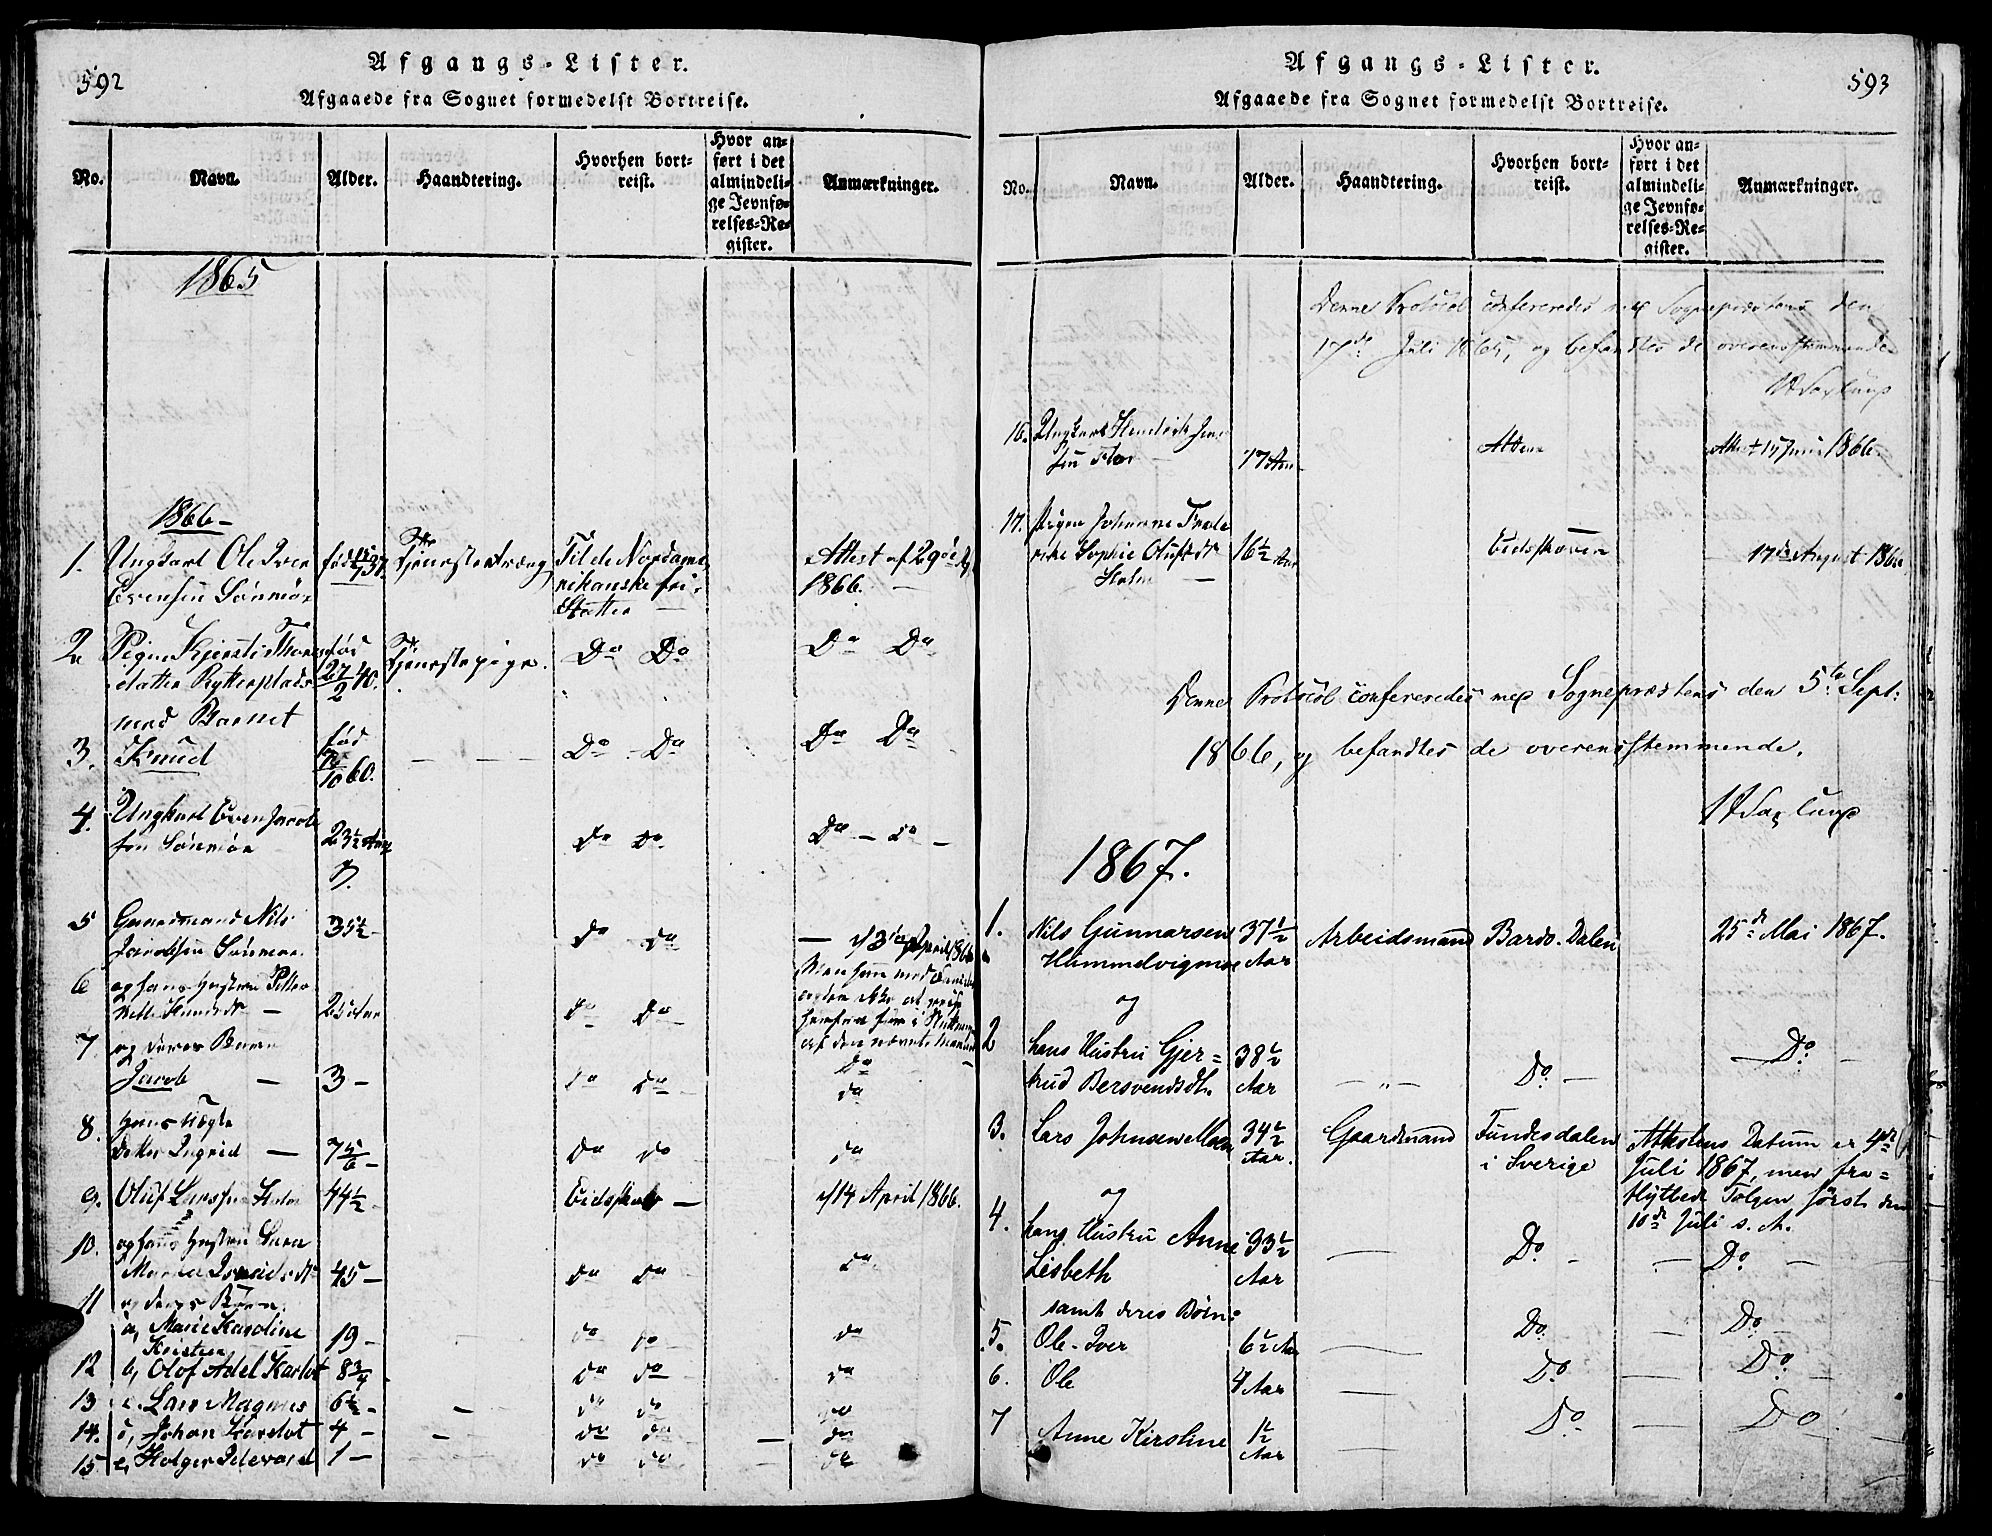 592
Afgangs-Lister.
Afgaaede fra Sognet formedelst Bortreise.
No.
Navn.
Alder.
Haandtering.
Hvorhen bort-
reist.
Hvor an-
ført i det
almindeli-
ge Jevnfø-
relses-Re-
gister.
Anmærkninger.
1865
1866-
1. Ungkarl Ole Iver født Tjenestedreng Til de Nordame- Attest af 29de
Evensen Sønmør rikanske fri- 1866.
Stater
2. Pigen Kjersti Thores født Tjenestepige. Do Do Do Do
datter Rytterplads 27/2 40.
med Barnet
3. Knud født /10 60. Do Do Do Do
4. Ungkarl Even Jacob 23½ Aar Do Do Do
sen Sønmør
5 Gaardmand Nils 35½ Do Do April 1866
Jacobsen Sønmør
6 og hans Hustru 25 Aar Do Do
7 og deres Barn
Jacob 3 Do Do Do
8. Hans
datter Ingrid 7 5/6 Do Do Do
9. Oluf Larssen Holm 44½ Eidskov 14 April 1866.
10. og hans Hustru
45 Do Do Do
11 og deres Børn
a, Marie Karoline
Kristine 19 Do Do Do
12 b, Olof Adel Karlot 8¾ Do Do Do
13 c. Lars Magnus 6½ Do Do Do
14. d, Johan Kardot 4 Do Do Do
15 e, Holger Edevard 1 Do Do Do
593
Afgangs-Lister.
Afgaaede fra Sognet formedelst Bortreise.
No.
Navn.
Alder.
Haandtering.
Hvorhen bort-
reist.
Hvor an-
ført i det
almindeli-
ge Jevnfø-
relses-Re-
gister.
Anmærkninger.
Denne Protocol confereredes med Sognepræstens den
17de Juli 1865, og befandtes de overensstemmende
16. Ungkarl Hendrik Jen
sen 17 Aar Alten Attest 15 Juni 1866.
17. Pigen Johanne Frede
rikke Sophie Olufsdtr 16½ Aar Eidskoven 17de August 1866
Holm
Denne Protocol confereredes med Sognepræstens den 5te Sept:
1866, og befandtes de overensstemmende.
1867.
1. Nils Gunnarsen 37½ Arbeidsmand Bardo-Dalen 25de Mai 1867.
Hummelvigmoe Aar
og
2 hans Hustru Gjer= 38½ Do. Do.
trud Bersvendsdt. Aar
3. Lars Johnsen Moen 34½ Gaardmand Fundesdalen Attestens Datum er 4de
Aar. i Sverige Juli 1867, men fra=
og flyttede Tolgen først den
10de Juli s. A.
4. hans Hustru Anne 33½ Do. Do.
Lisbeth Aar
samt deres Børn:
5. Ole Iver 6½ Aar Do. Do.
6. Ole 4 Aar Do. Do.
7 Anne Kirstine 1½ Do. Do.
Aar